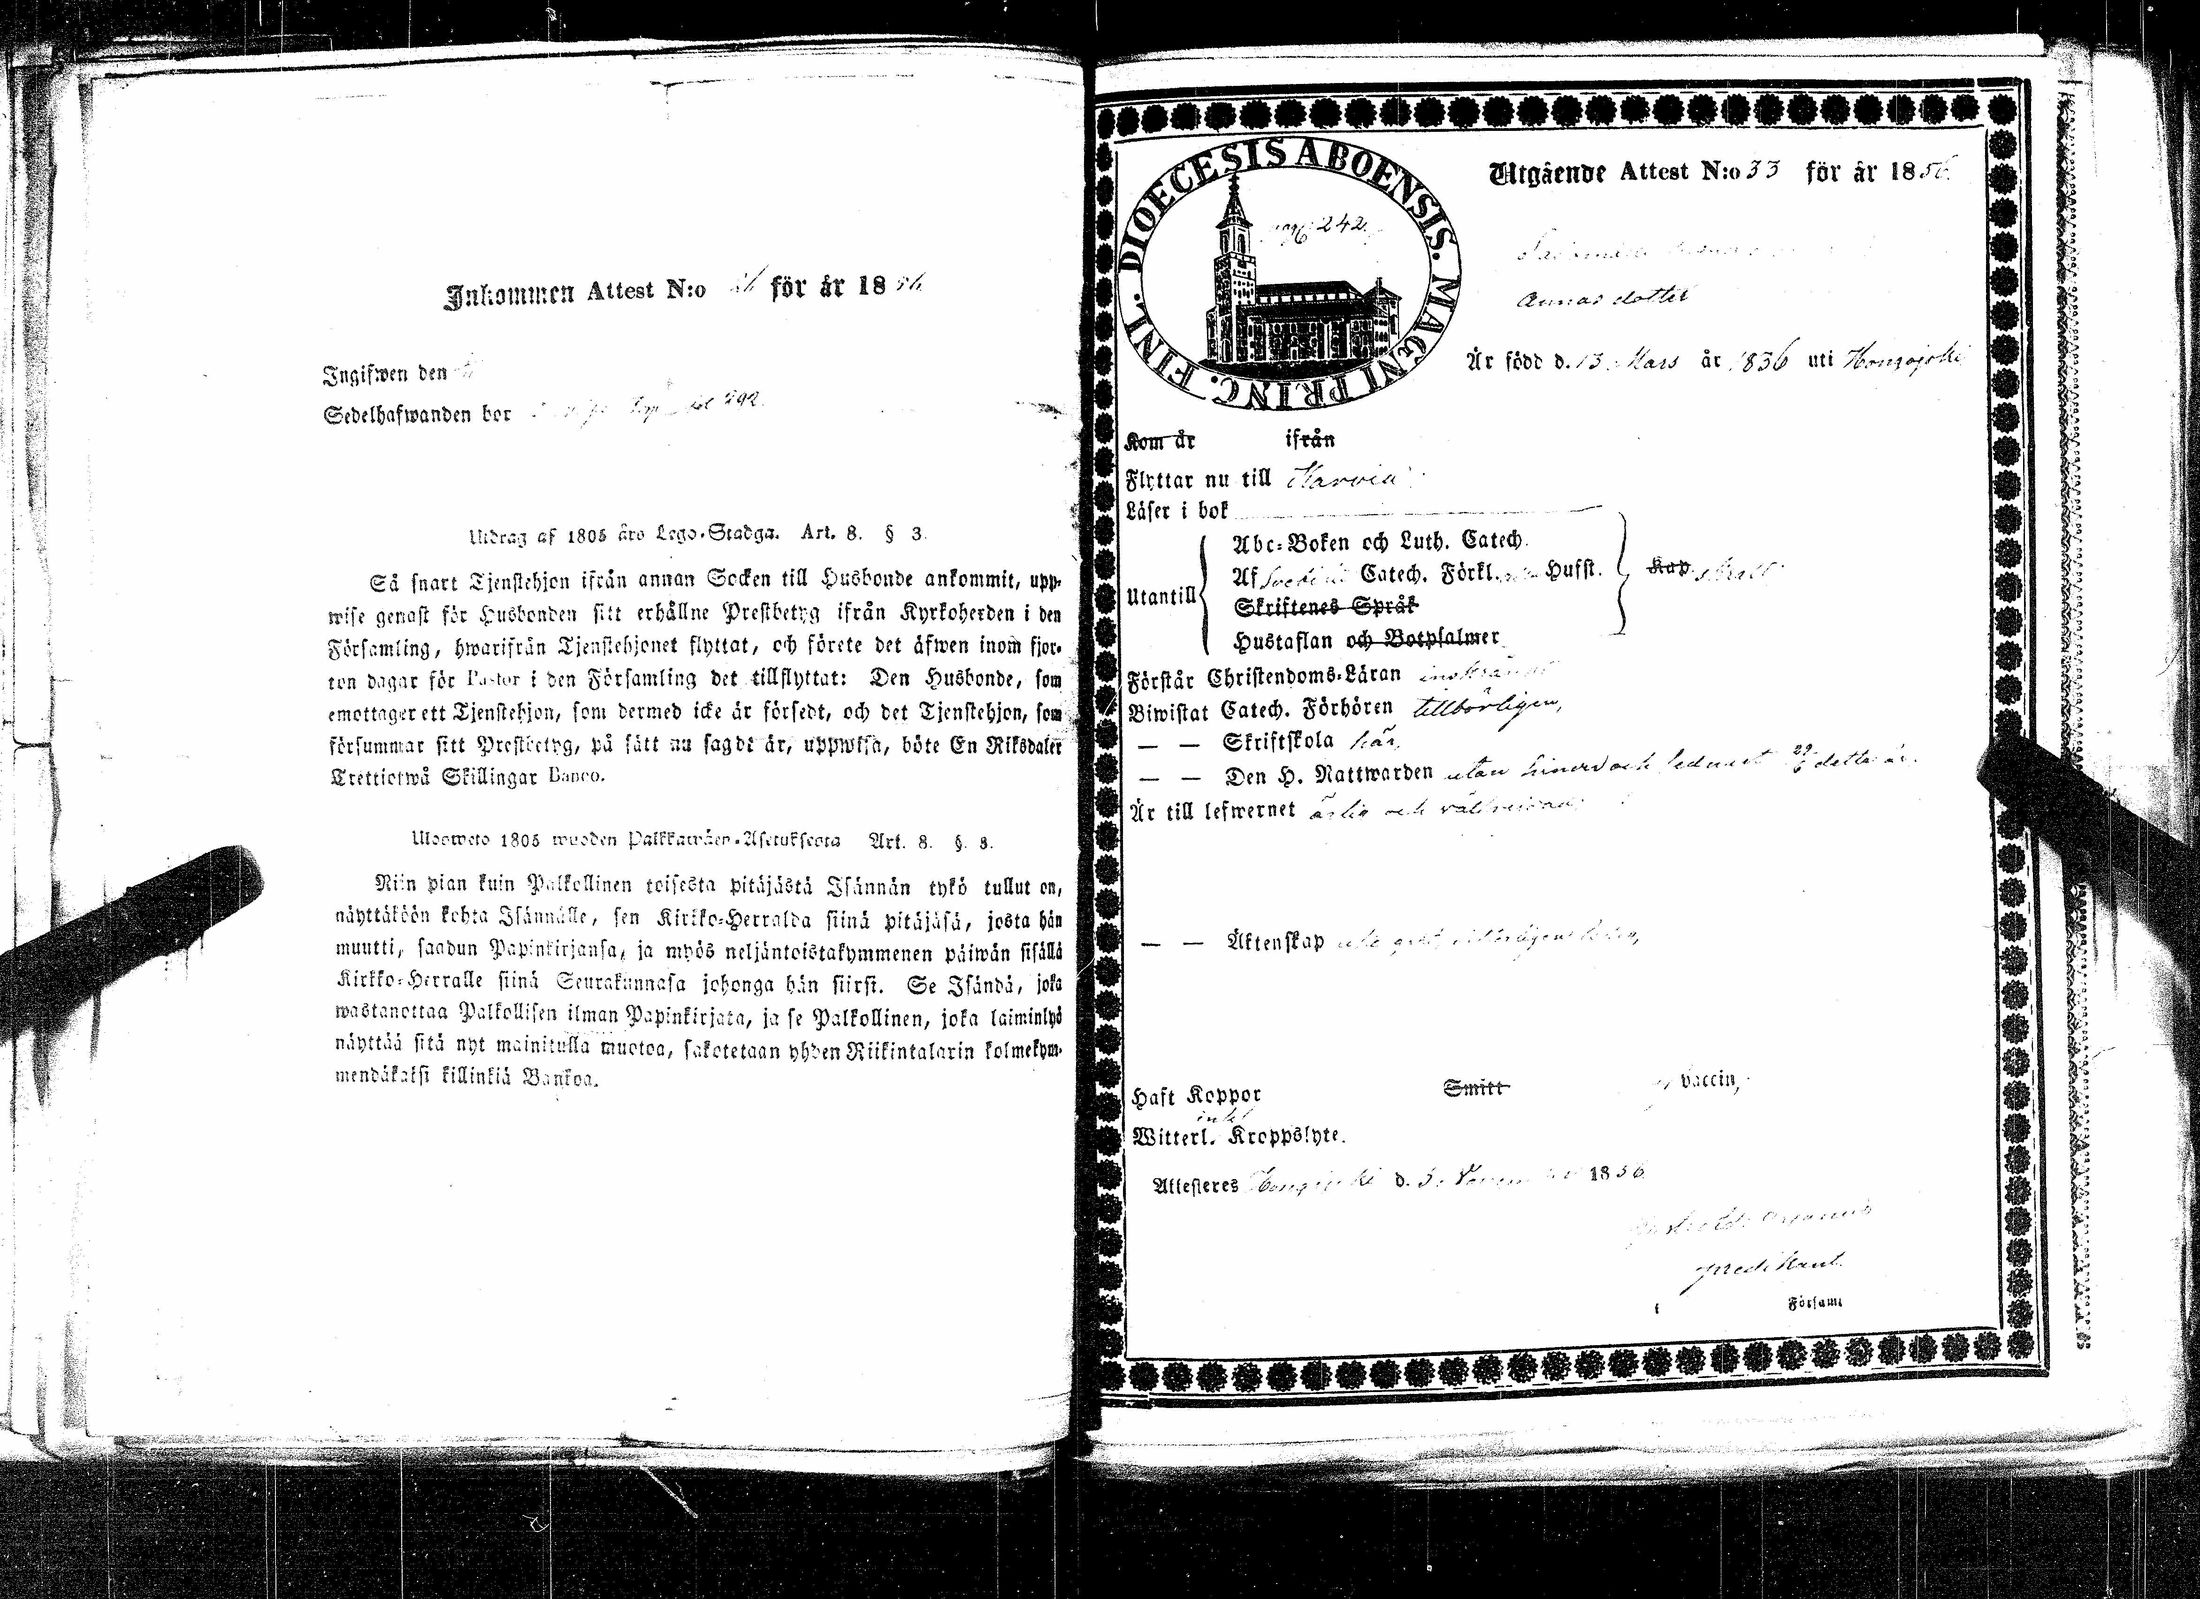 Inkommen Attest N:o för år 18 56
Ingifwen den
Sedelhafwanden bor 292.
Utdrag af 1805 års Lego-Stadga. Art. 8. § 3.
Så snart Tjenstehjon ifrån annan Socken till Husbonde ankommit, upp-
wise genast för Husbonden sitt erhållne Prestbetyg ifrån Kyrkoherden i den
Församling, hwarifrån Tjenstehjonet flyttat, och förete det äfwen inom fjor-
ton dagar för Pastor i den Församling det tillflyttat: Den Husbonde, som
emottager ett Tjenstehjon, som dermed icke är försedt, och det Tjenstehjon, som
försummar sitt Prestbetyg, på sätt nu sagdt är, uppwisa, böte En Riksdaler
Trettiotwå Skillingar Banco.
Ulosweto 1805 wuoden Palkkawäen-Asetuksesta Art. 8. §. 3.
Niin pian kuin Palkollinen toisesta pitäjästä Isännän tykö tullut on,
näyttäköön kohta Isännälle, sen Kirkko-Herralda siinä pitäjäsä, josta hän
muutti, saadun Papinkirjansa, ja myös neljäntoistakymmenen päiwän sisällä
Kirkko-Herralle siinä Seurakunnasa johonga hän siirsi. Se Isändä, joka
wastanottaa Palkollisen ilman Papinkirjata, ja se Palkollinen, joka laiminlyö
näyttää sitä nyt mainitulla muotoa, sakotetaan yhden Riikintalarin kolmekym-
mendäkaksi killinkiä Bankoa.
DIOECESIS ABOENSIS. MAGNI PRINC. FINL.
pag 242.
Utgående Attest N:o 33 för år 1856.
Annas dotter
Är född d. 13 Mars år 1836 uti Hongojoki
Kom år ifrån
Flyttar nu till Karvia
Läser i bok
Utantill
Abc-Boken och Luth. Catech.
Af Svebilii Catech. Förkl. Hufst.
Skriftenes Språk
Hustaflan och Botpsalmer
Kap
Förstår Christendoms-Läran inskränkt
Biwistat Catech. Förhören tillbörligen,
— — Skriftskola här,
— — Den H. Nattwarden utan hinder och sednast 29/6 detta år.
Är till lefwernet ärlig och välfrejdad
— — Äktenskap
Haft Koppor Smitt vaccin,
Witterl. intet Kroppslyte.
Attesteres d. 5 November 1856
predikant.
i Församl